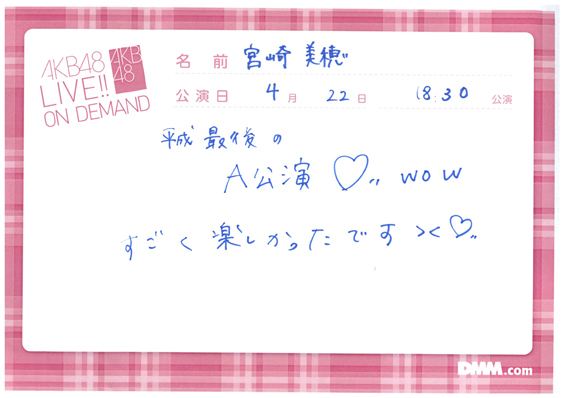 AKB48
LIVE!!
ON DEMAND
AKB
48
名前 宮崎 美穂
公演日 4月 22日 18:30 公演
平成 最後 の
A公演 ♡〃 wow
すごく 楽しかったです ><♡〃
DMM.com